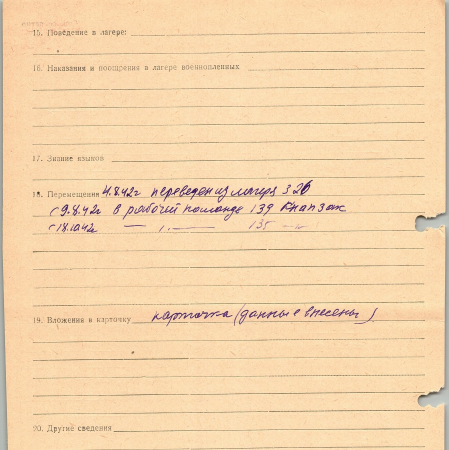 15. Поведение в лагере:
16. Наказания и поощрения в лагере военнопленных
17. Знание языков
18. Перемещения 4.8.42г переведен из лагеря 326
с 9.8.42г в рабочей команде 139 Кнапзак
с 18.10.42г — " — 135 — " —
19. Вложения в карточку карточка (данные внесены)
20. Другие сведения